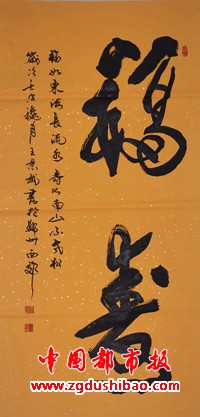 福寿
福如东海长流水寿比南山不老松
岁次壬戌秋月王景武书于郑州西郊
中国都市报
www.zgdushibao.com